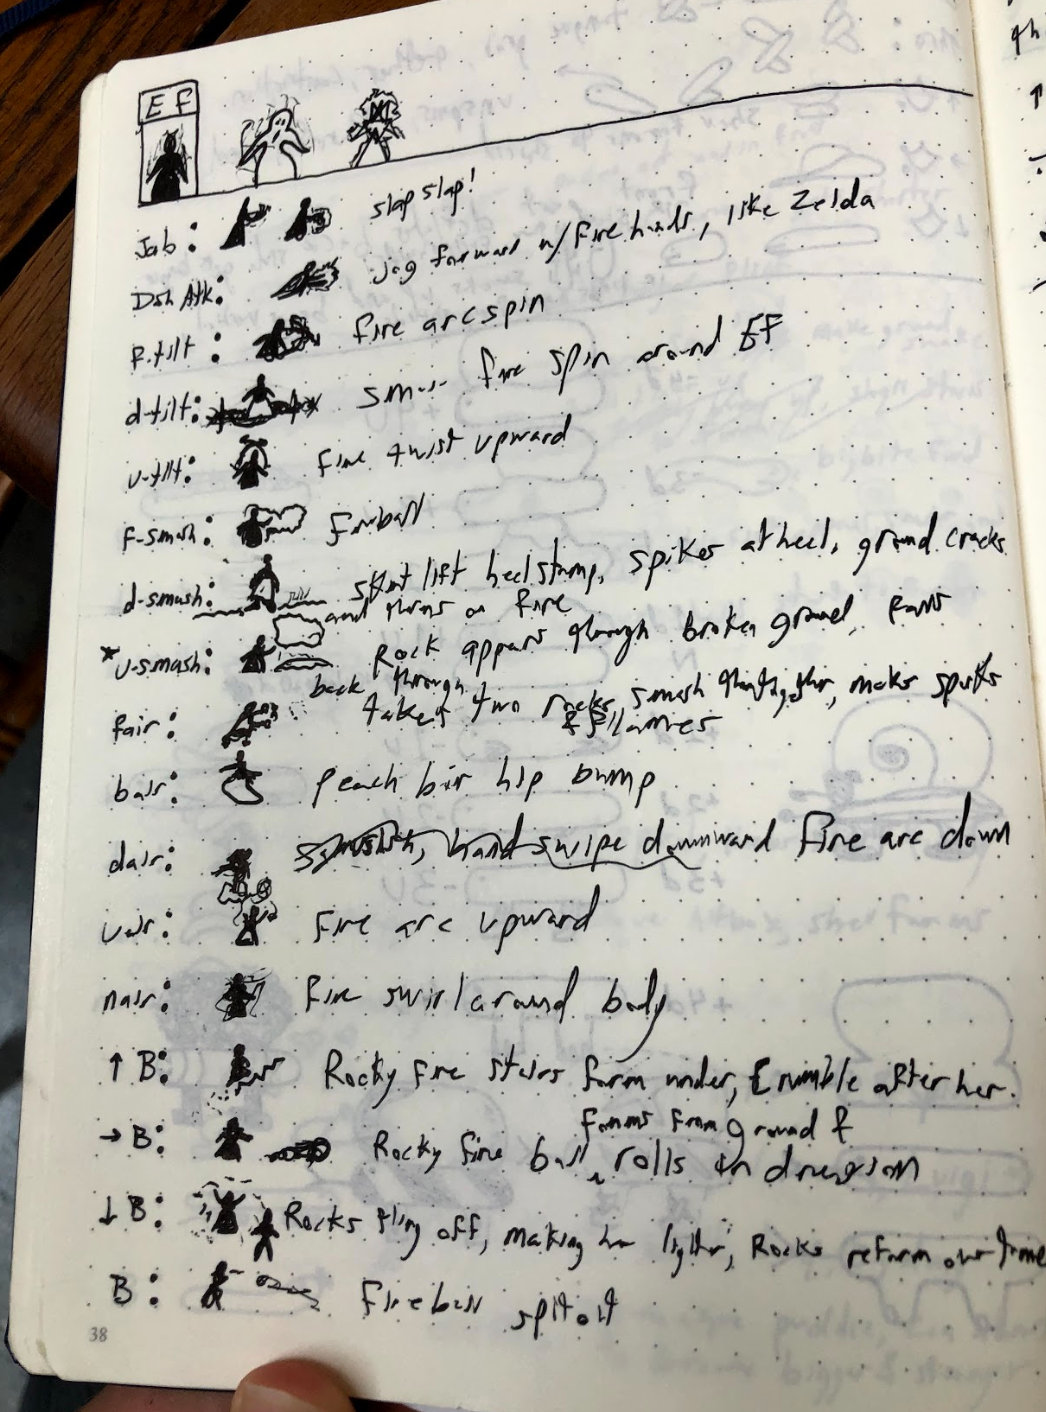 EF
Jab: slap slap!
Dsh Atk: jog forward w/ fire hands, like Zelda
F-tilt: fire arc spin
d-tilt: fire spin around EF
u-tilt: Fire twist upward
F-smash: Fireball
d-smash: lift heel stomp, spikes at heel, ground cracks
and turns on fire
*U-smash: Rock appears through broken ground,
back through
fair: takes two rocks, smash them together, makes sparks
& flames
bair: Peach bair hip bump
dair: hand swipe downward fire arc down
uair: Fire arc upward
nair: Fire swirl around body
↑ B: Rocky fire stairs form under, crumble after her.
forms from ground &
→ B: Rocky fire ball, rolls in direction
↓ B: Rocks fling off, making her lighter, Rocks reform over time
B: Fireball spit out
38